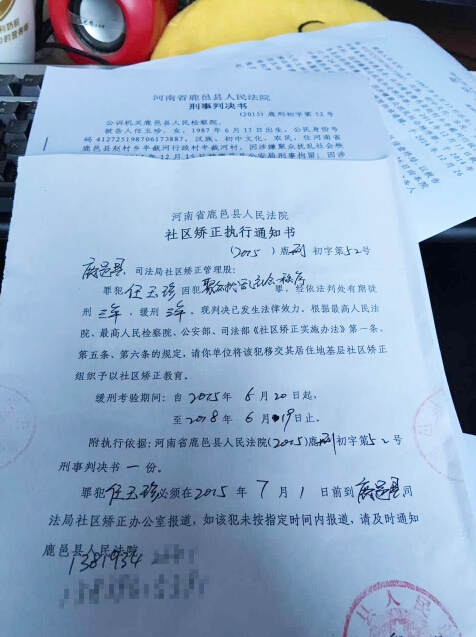 河南省鹿邑县人民法院
刑事判决书
(2015)鹿刑初字第52号
公诉机关鹿邑县人民检察院。
被告人任玉珍,女,1987年6月17日出生,公民身份号
码412725198706173887,汉族,初中文化,农民,住河南省
鹿邑县赵村乡半截河行政村半截河村。因涉嫌聚众扰乱社会秩
河南省鹿邑县人民法院
社区矫正执行通知书
(2015)鹿刑初字第52号
鹿邑县司法局社区矫正管理股:
罪犯任玉珍因犯聚众扰乱社会秩序罪,经依法判处有期徒
刑三年,缓刑三年。现判决已发生法律效力。根据最高人民法
院、最高人民检察院、公安部、司法部《社区矫正实施办法》第一条、
第五条、第六条的规定,请你单位将该犯移交其居住地基层社区矫正
组织予以社区矫正教育。
缓刑考验期间:自2015年6月20日起,
至2018年6月19日止。
附执行依据:河南省鹿邑县人民法院(2015)鹿刑初字第52号
刑事判决书一份。
罪犯任玉珍必须在2015年7月1日前到鹿邑县司
法局社区矫正办公室报道,如该犯未按指定时间内报道,请及时通知
鹿邑县人民法院
1381934